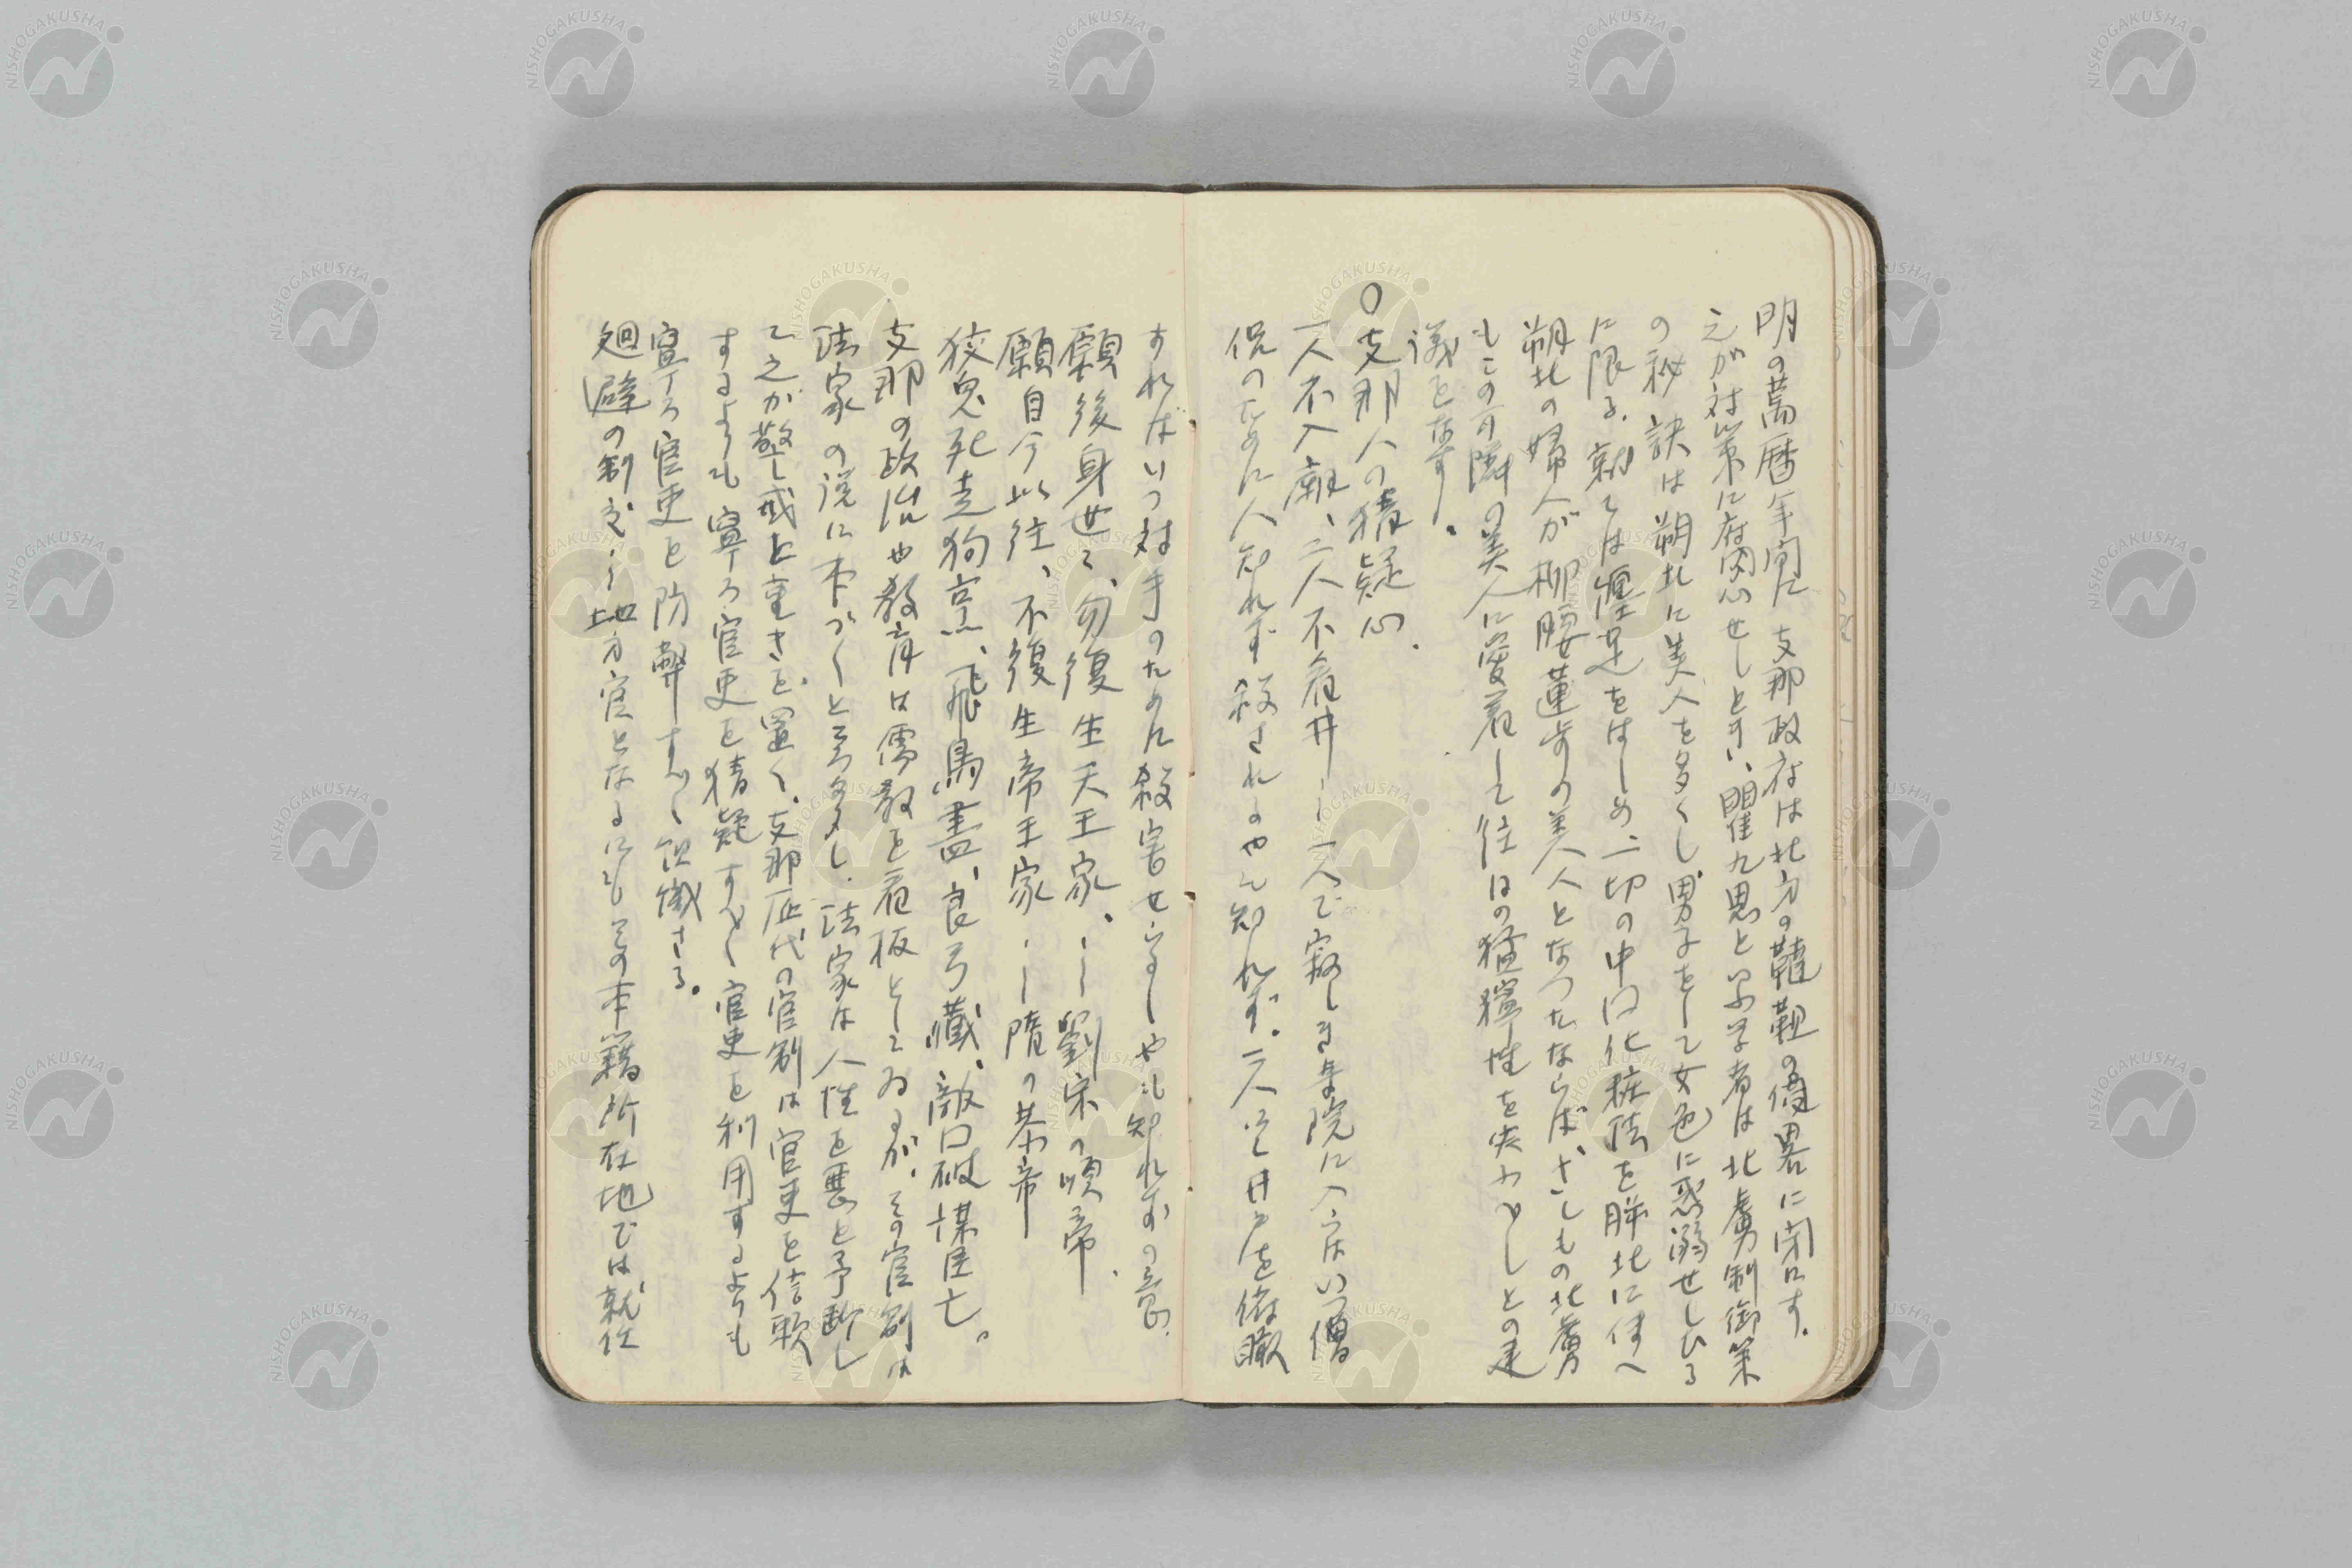 明の萬暦年間に支那政府は北方の韃靼の侵畧に閉口す.
之が対策に府〻心せしとき、瞿九思といふ学者は北虜制御策
の秘訣は朔北に美人を多くし男子をして女色に惑溺せしむる
に限る. 就ては纏足をはじめ一切の中国化粧法を朔北に伝へ
朔北の婦人が柳腰蓮歩の美人となつたならば、さしもの北虜
もこの可憐の美人に愛着して往日の猛獰性を失わむしとの建
議をなす.
○支那人の猜疑心.
一人不入廟、二人不看井— 一人で寂しき寺院に入らはいつ僧
侶のために人知れず殺されるやも知れず. 二人して井戸を俯瞰
すればいつ対手のために殺害せらるゝやも知れずの意.
願後身世〻、勿復生天王家、—劉宋の順帝.
願自今以往、不復生帝王家—隋の恭帝
狡兎死走狗烹、飛鳥盡、良弓蔵、敵口破謀臣亡。
支那の政治や教育は儒教を看板としてゐるが、その官制は
法家の説に本づくところ多し. 法家は人性を悪と予断し
て之が警戒に重きを置く、支那歴代の官制は官吏を信頼
するよりも寧ろ官吏を猜疑すべく官吏を利用するよりも
寧ろ官吏を防弊すべく組織さる.
廻避の制度— 地方官となるにもその本籍所在地では就任